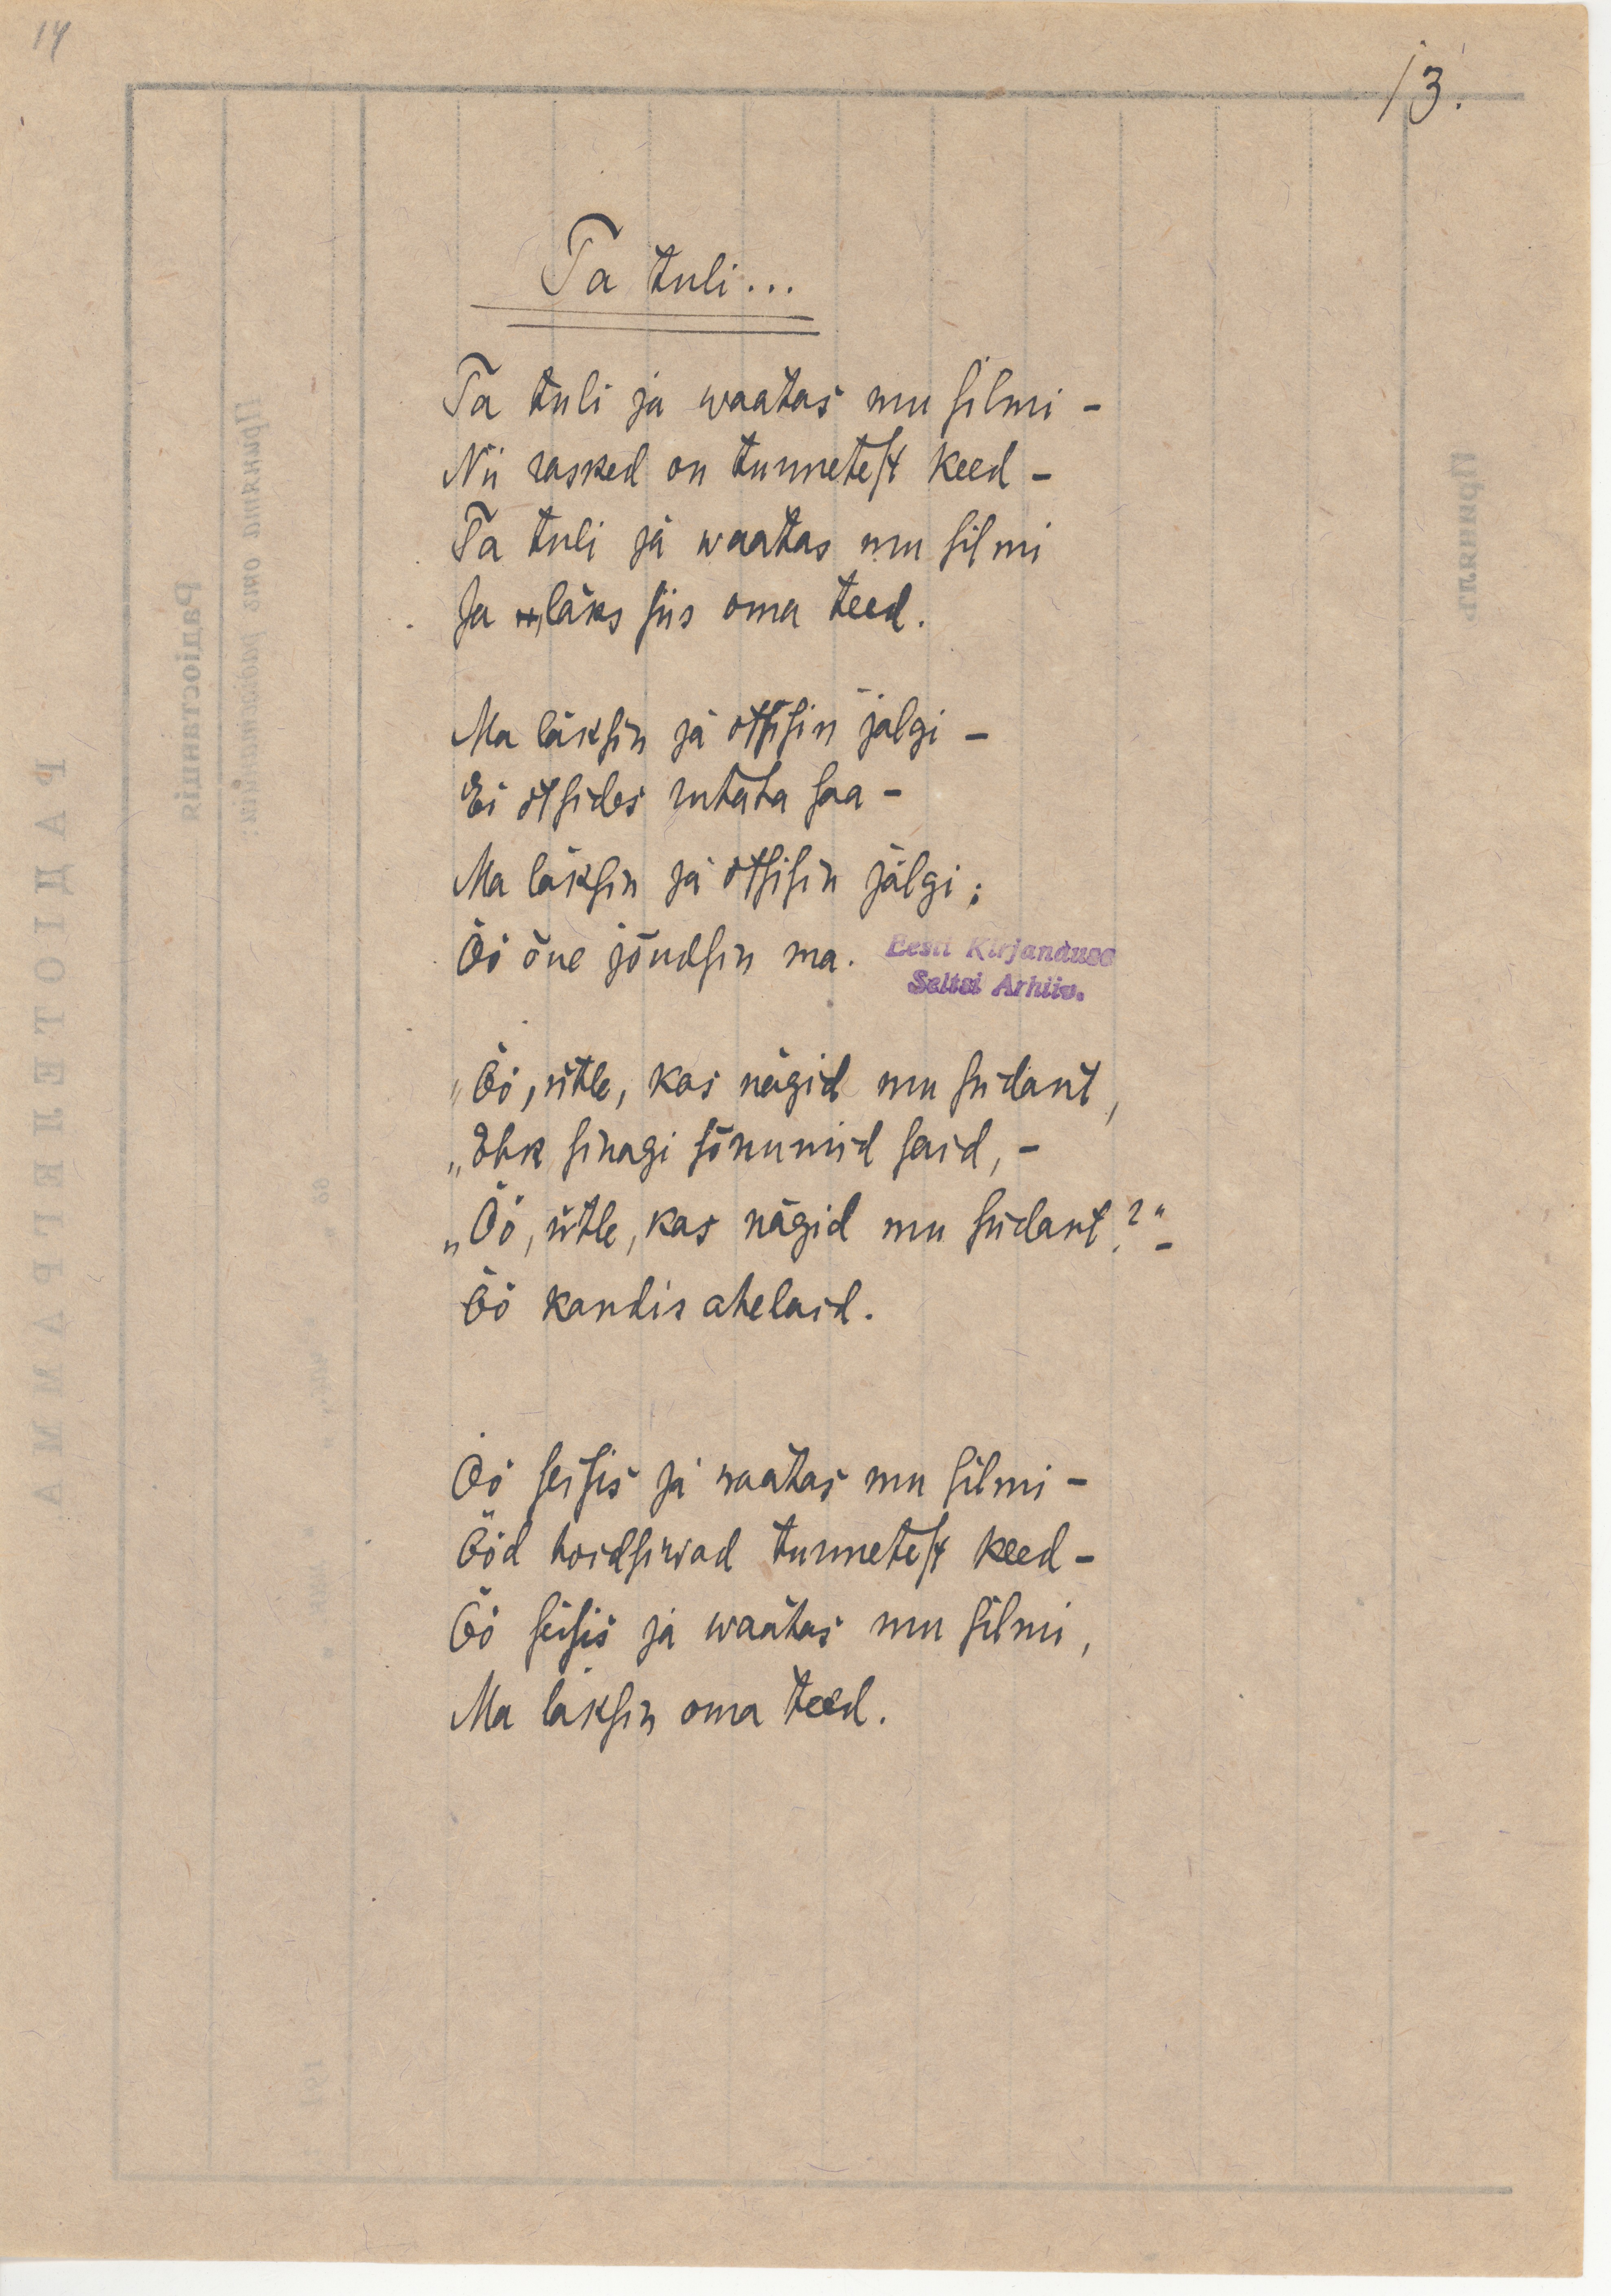 14
13.
Ta tuli...
Ta tuli ja waatas mu silmi –
Nii rasked on tunnetest keed –
Ta tuli ja waatas mu silmi
Ja läks siis oma teed.
Ma läksin ja otsisin jälgi –
Ei otsides rutata saa –
Ma läksin ja otsisin jälgi;
Öö õue jõudsin ma.
Eesti Kirjanduse
Seltsi Arhiiv.
„Öö, ütle, kas nägid mu südant,
„Ehk sinagi sõnumid said, –
„Öö, ütle, kas nägid mu südant?“ –
Öö kandis ahelaid.
Öö seisis ja waatas mu silmi –
Ööd hoidsiwad tunnetest keed –
Öö seisis ja waatas mu silmi,
Ma läksin oma teed.
РАДІОТЕЛЕГРАММА
Радіостанція
Принята